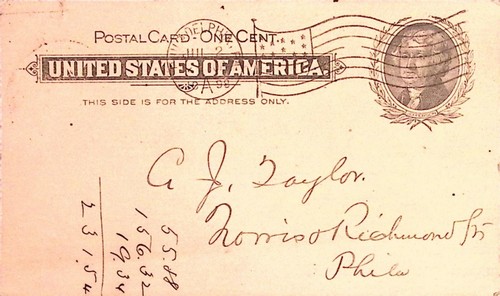 POSTAL CARD ONE CENT.
UNITED STATES OF AMERICA.
THIS SIDE IS FOR THE ADDRESS ONLY.
JUL 2
A
A J. Taylor.
Norris & Richmond Sts
Phila
55.88
156.32
19.34
231.54